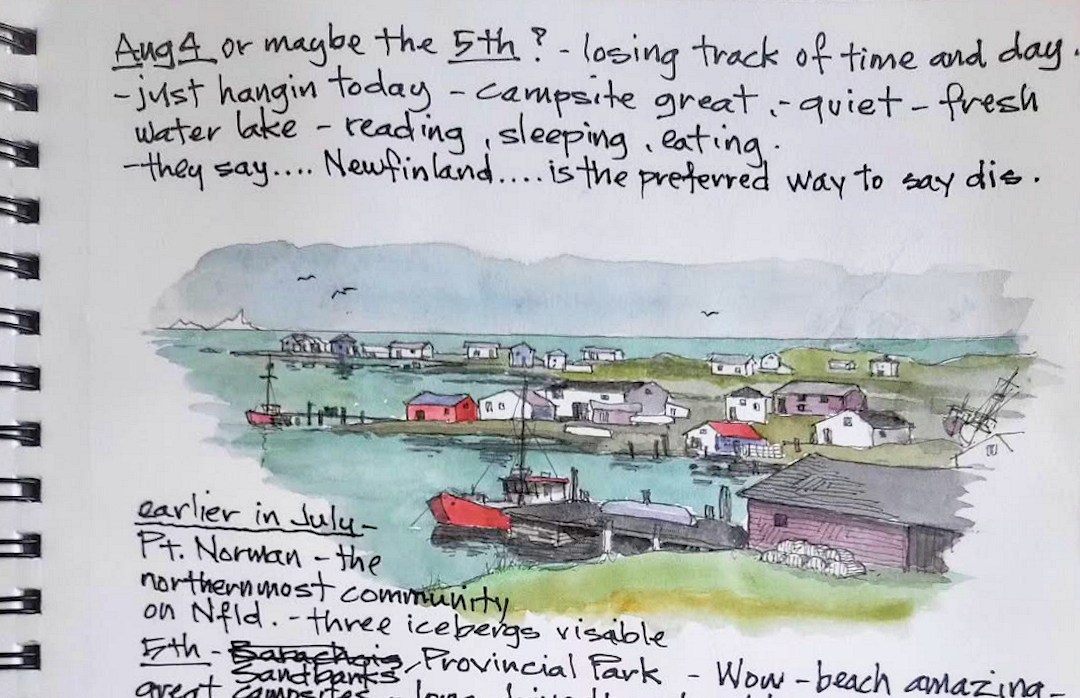 Aug 4 or maybe the 5th? - losing track of time and day.
- just hangin today - campsite great, - quiet - fresh
water lake - reading, sleeping, eating.
- they say.... Newfinland.... is the preferred way to say dis.
earlier in July -
Pt. Norman - the
northernmost community
on Nfld. - three icebergs visable
5th - Barachois, Provincial Park - Wow - beach amazing -
Sandbanks
great campsites - long